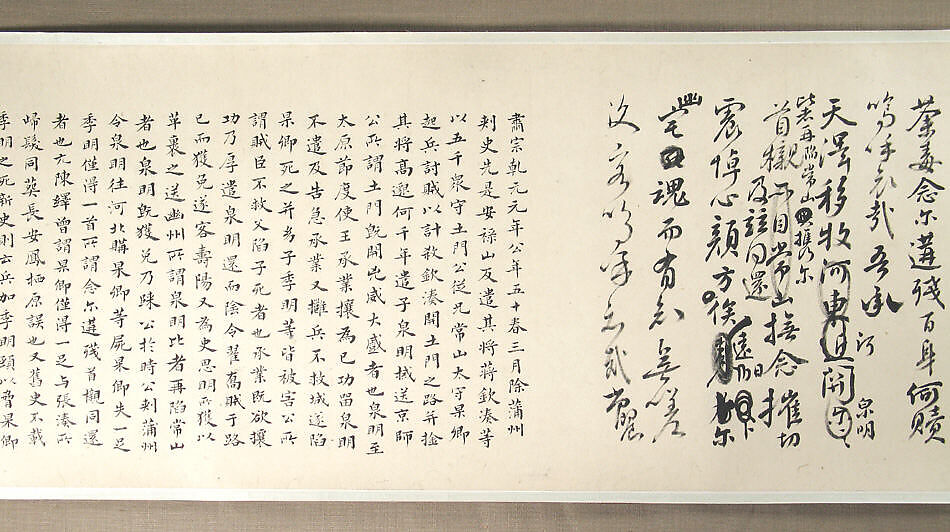 荼毒念尔遘殘百身何贖
嗚呼哀哉吾承 河 泉明
天澤移牧河東近河關
比者再陷常山携尔
首櫬亦自常山撫念摧切
及茲同還
震悼心顏方俟遠日卜尔
幽宅魂而有知無嗟
久客嗚呼哀哉尚饗
肅宗乾元元年公年五十春三月除蒲州
刾史先是安禄山反遣其將蔣欽湊等
以五千衆守土門公從兄常山太守杲卿
起兵討賊以計殺欽湊開土門之路并擒
其將高邈何千年遣子泉明械送京師
公所謂土門既開㐫威大蹙者也泉明至
太原節度使王承業攘為己功留泉明
不遣及告急承業又擁兵不救城遂陷
杲卿死之并㓜子季明等皆被害公所
謂賊臣不救父陷子死者也承業既欲攘
功乃厚遣泉明還而陰令翟喬賊于路
已而獲免遂客壽陽又為史思明所獲以
革裹之送幽州所謂泉明比者再陷常山
者也泉明既獲免乃踈公於時公刺蒲州
令泉明往河北購杲卿等屍杲卿失一足
季明僅得一首所謂念尔遘殘首櫬同還
者也元陳繹曾謂杲卿僅得一足与張湊所
歸髮同葬長安鳳栖原誤也又舊史不載
季明之死新史則云兵加季明頸以脅杲卿